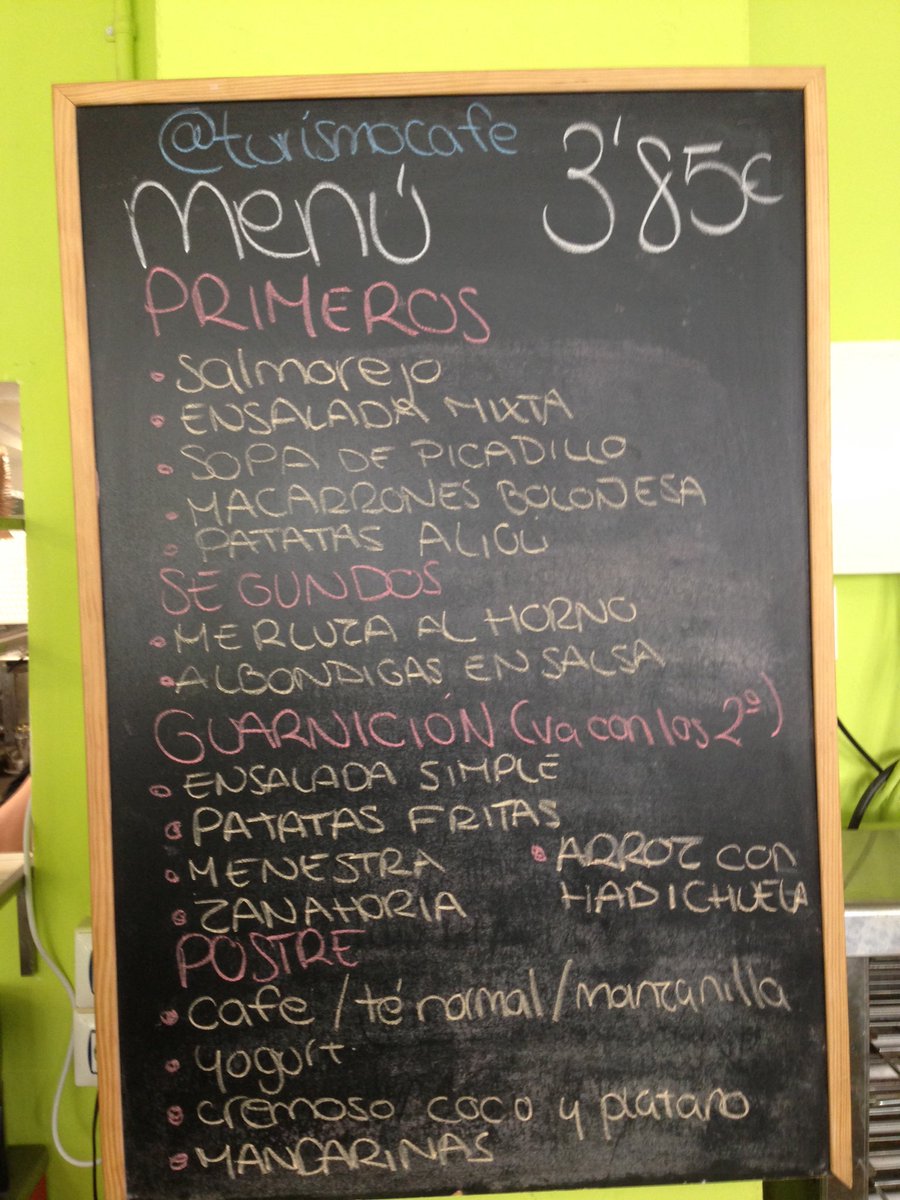 @turismocafe
menú 3'85€
PRIMEROS
• salmorejo
• ENSALADA MIXTA
• SOPA DE PICADILLO
• MACARRONES BOLOÑESA
• PATATAS ALIOLI
SEGUNDOS
• MERLUZA AL HORNO
• ALBONDIGAS EN SALSA
GUARNICIÓN (va con los 2º)
• ENSALADA SIMPLE
• PATATAS FRITAS
• MENESTRA
• ZANAHORIA
• ARROZ CON
HABICHUELA
POSTRE
• cafe / té normal / manzanilla
• yogurt
• cremoso coco y platano
• MANDARINAS